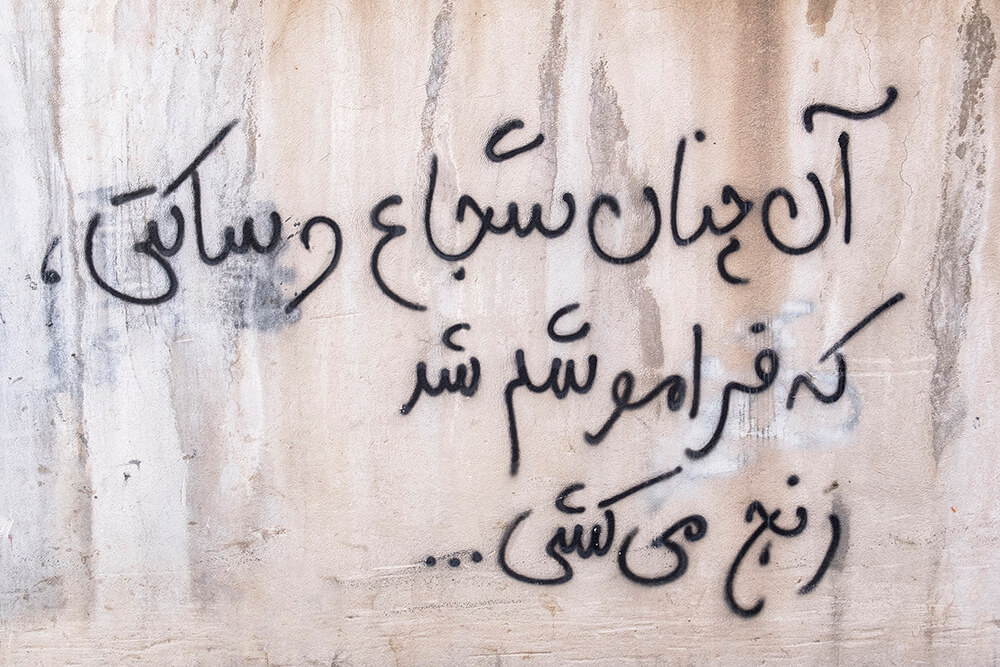 آن چنان شجاع و ساکتی،
که فراموشم شد
رنج می کشی...